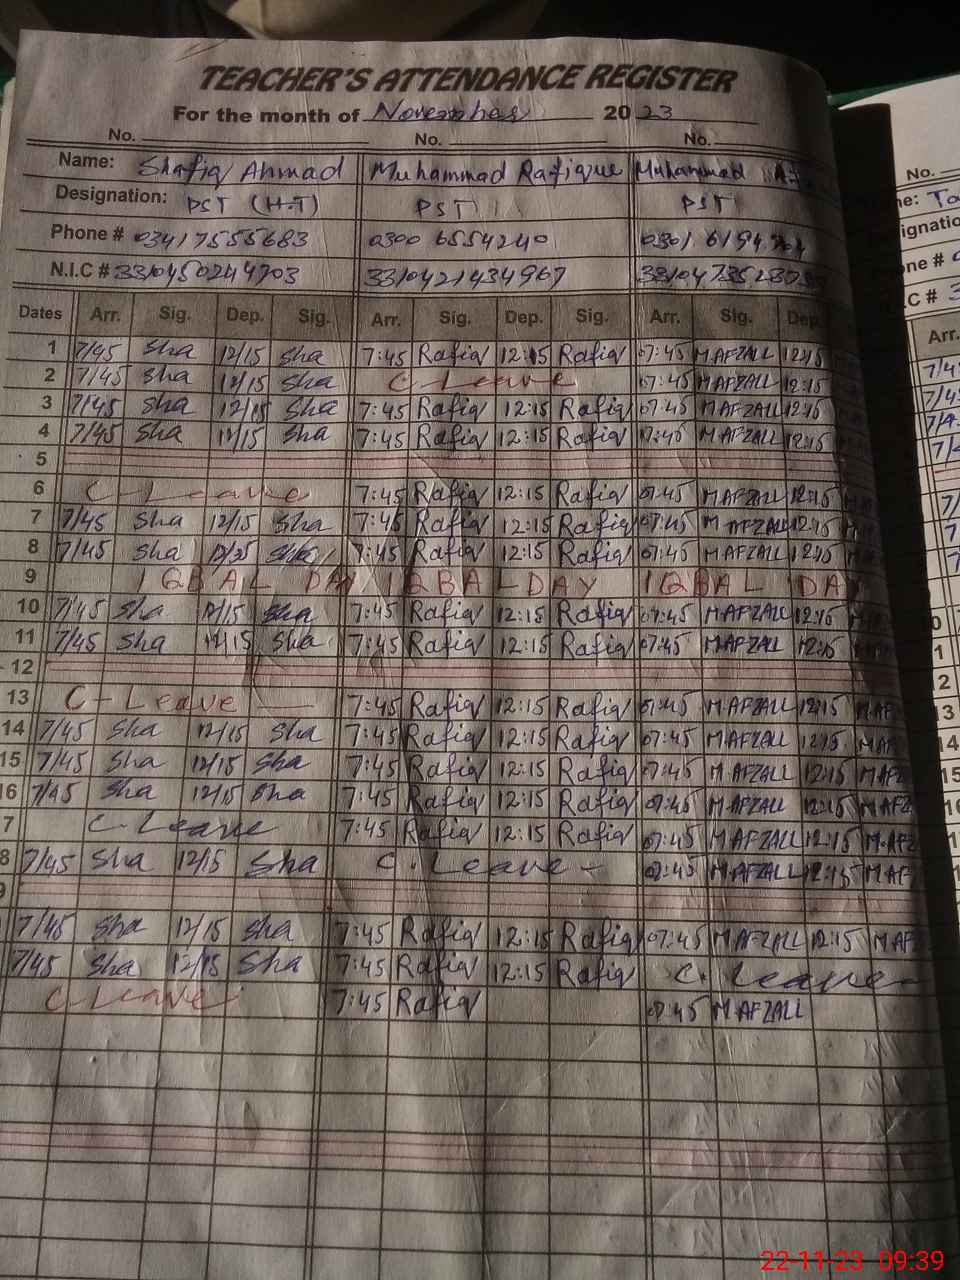 TEACHER'S ATTENDANCE REGISTER
For the month of November 2023
No. No. No.
Name: Shafiq Ahmad Muhammad Rafique Muhammad
Designation: PST (H.T) PST PST
Phone # 03417555683 0300 6554240 0301 6194
N.I.C # 3310450244703 3310421434967
Dates Arr. Sig. Dep. Sig. Arr. Sig. Dep. Sig. Arr. Sig. Dep.
1 7/45 Sha 12/15 Sha 7:45 Rafiq 12:15 Rafiq 07:45 M AFZALL 12:15
2 7/45 Sha 12/15 Sha C-Leave 07:45 MAFZALL 12:15
3 7/45 Sha 12/15 Sha 7:45 Rafiq 12:15 Rafiq 07:45 MAFZALL 12:15
4 7/45 Sha 12/15 Sha 7:45 Rafiq 12:15 Rafiq 07:45 M AFZALL 12:15
5
6 C-Leave 7:45 Rafiq 12:15 Rafiq 07:45 M AFZALL 12:15
7 7/45 Sha 12/15 Sha 7:45 Rafiq 12:15 Rafiq 07:45 M AFZALL 12:15
8 7/45 Sha Sha 7:45 Rafiq 12:15 Rafiq 07:45 M AFZALL 12:15
9 IQBAL DAY IQBAL DAY IQBAL DAY
10 7/45 Sha 12/15 Sha 7:45 Rafiq 12:15 Rafiq 07:45 M AFZALL 12:15
11 7/45 Sha 12/15 Sha 7:45 Rafiq 12:15 Rafiq 07:45 MAFZALL 12:15
12
13 C-Leave 7:45 Rafiq 12:15 Rafiq 07:45 M AFZALL 12:15 M AF
14 7/45 Sha 12/15 Sha 7:45 Rafiq 12:15 Rafiq 07:45 M AFZALL 12:15 M AF
15 7/45 Sha 12/15 Sha 7:45 Rafiq 12:15 Rafiq 07:45 M AFZALL 12:15 M AF
16 7/45 Sha 12/15 Sha 7:45 Rafiq 12:15 Rafiq 07:45 M AFZALL 12:15 M AFZ
7 C-Leave 7:45 Rafiq 12:15 Rafiq 07:45 M AFZALL 12:15 M.AFZ
8 7/45 Sha 12/15 Sha C.Leave - 07:45 M AFZALL 12:15 M AF
9
7/45 Sha 12/15 Sha 7:45 Rafiq 12:15 Rafiq 07:45 M AFZALL 12:15 M AF
7/45 Sha 12/15 Sha 7:45 Rafiq 12:15 Rafiq C. Leave
C-Leave 7:45 Rafiq 07:45 M AFZALL
22-11-23 09:39